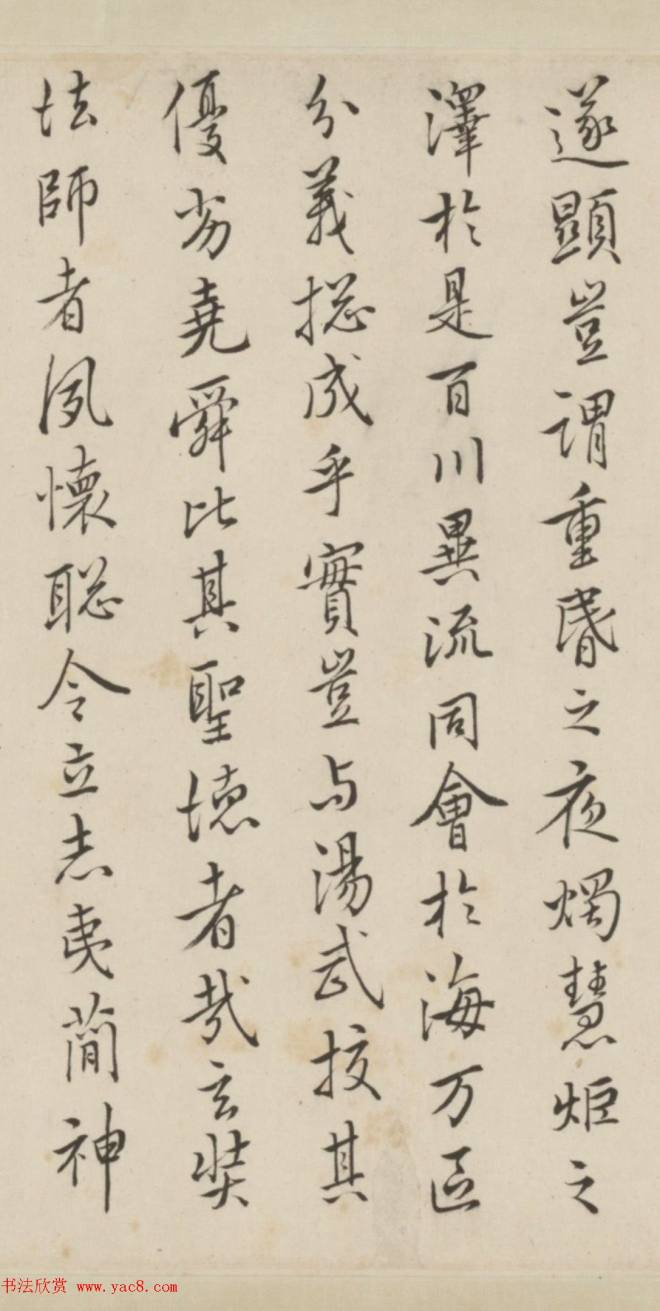 遂顯豈謂重昏之夜燭慧炬之
澤於是百川異流同會於海万區
分義揔成乎實豈与湯武挍其
優劣堯舜比其聖德者哉玄奘
法師者夙懷聡令立志夷簡神
书法欣赏 www.yac8.com